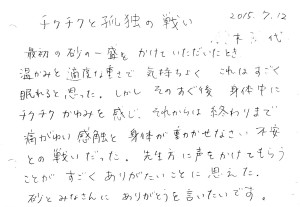 2015.7.12
チクチクと孤独の戦い
最初の砂の一盛をかけていただいたとき
温かみと適度な重さで気持ちよく これはすごく
眠れると思った。しかしそのすぐ後 身体中に
チクチクかゆみを感じ、それからは終わりまで
痛がゆい感触と身体が動かせない不安
との戦いだった。先生方に声をかけてもらう
ことがすごくありがたいことに思えた。
砂とみなさんにありがとうを言いたいです。